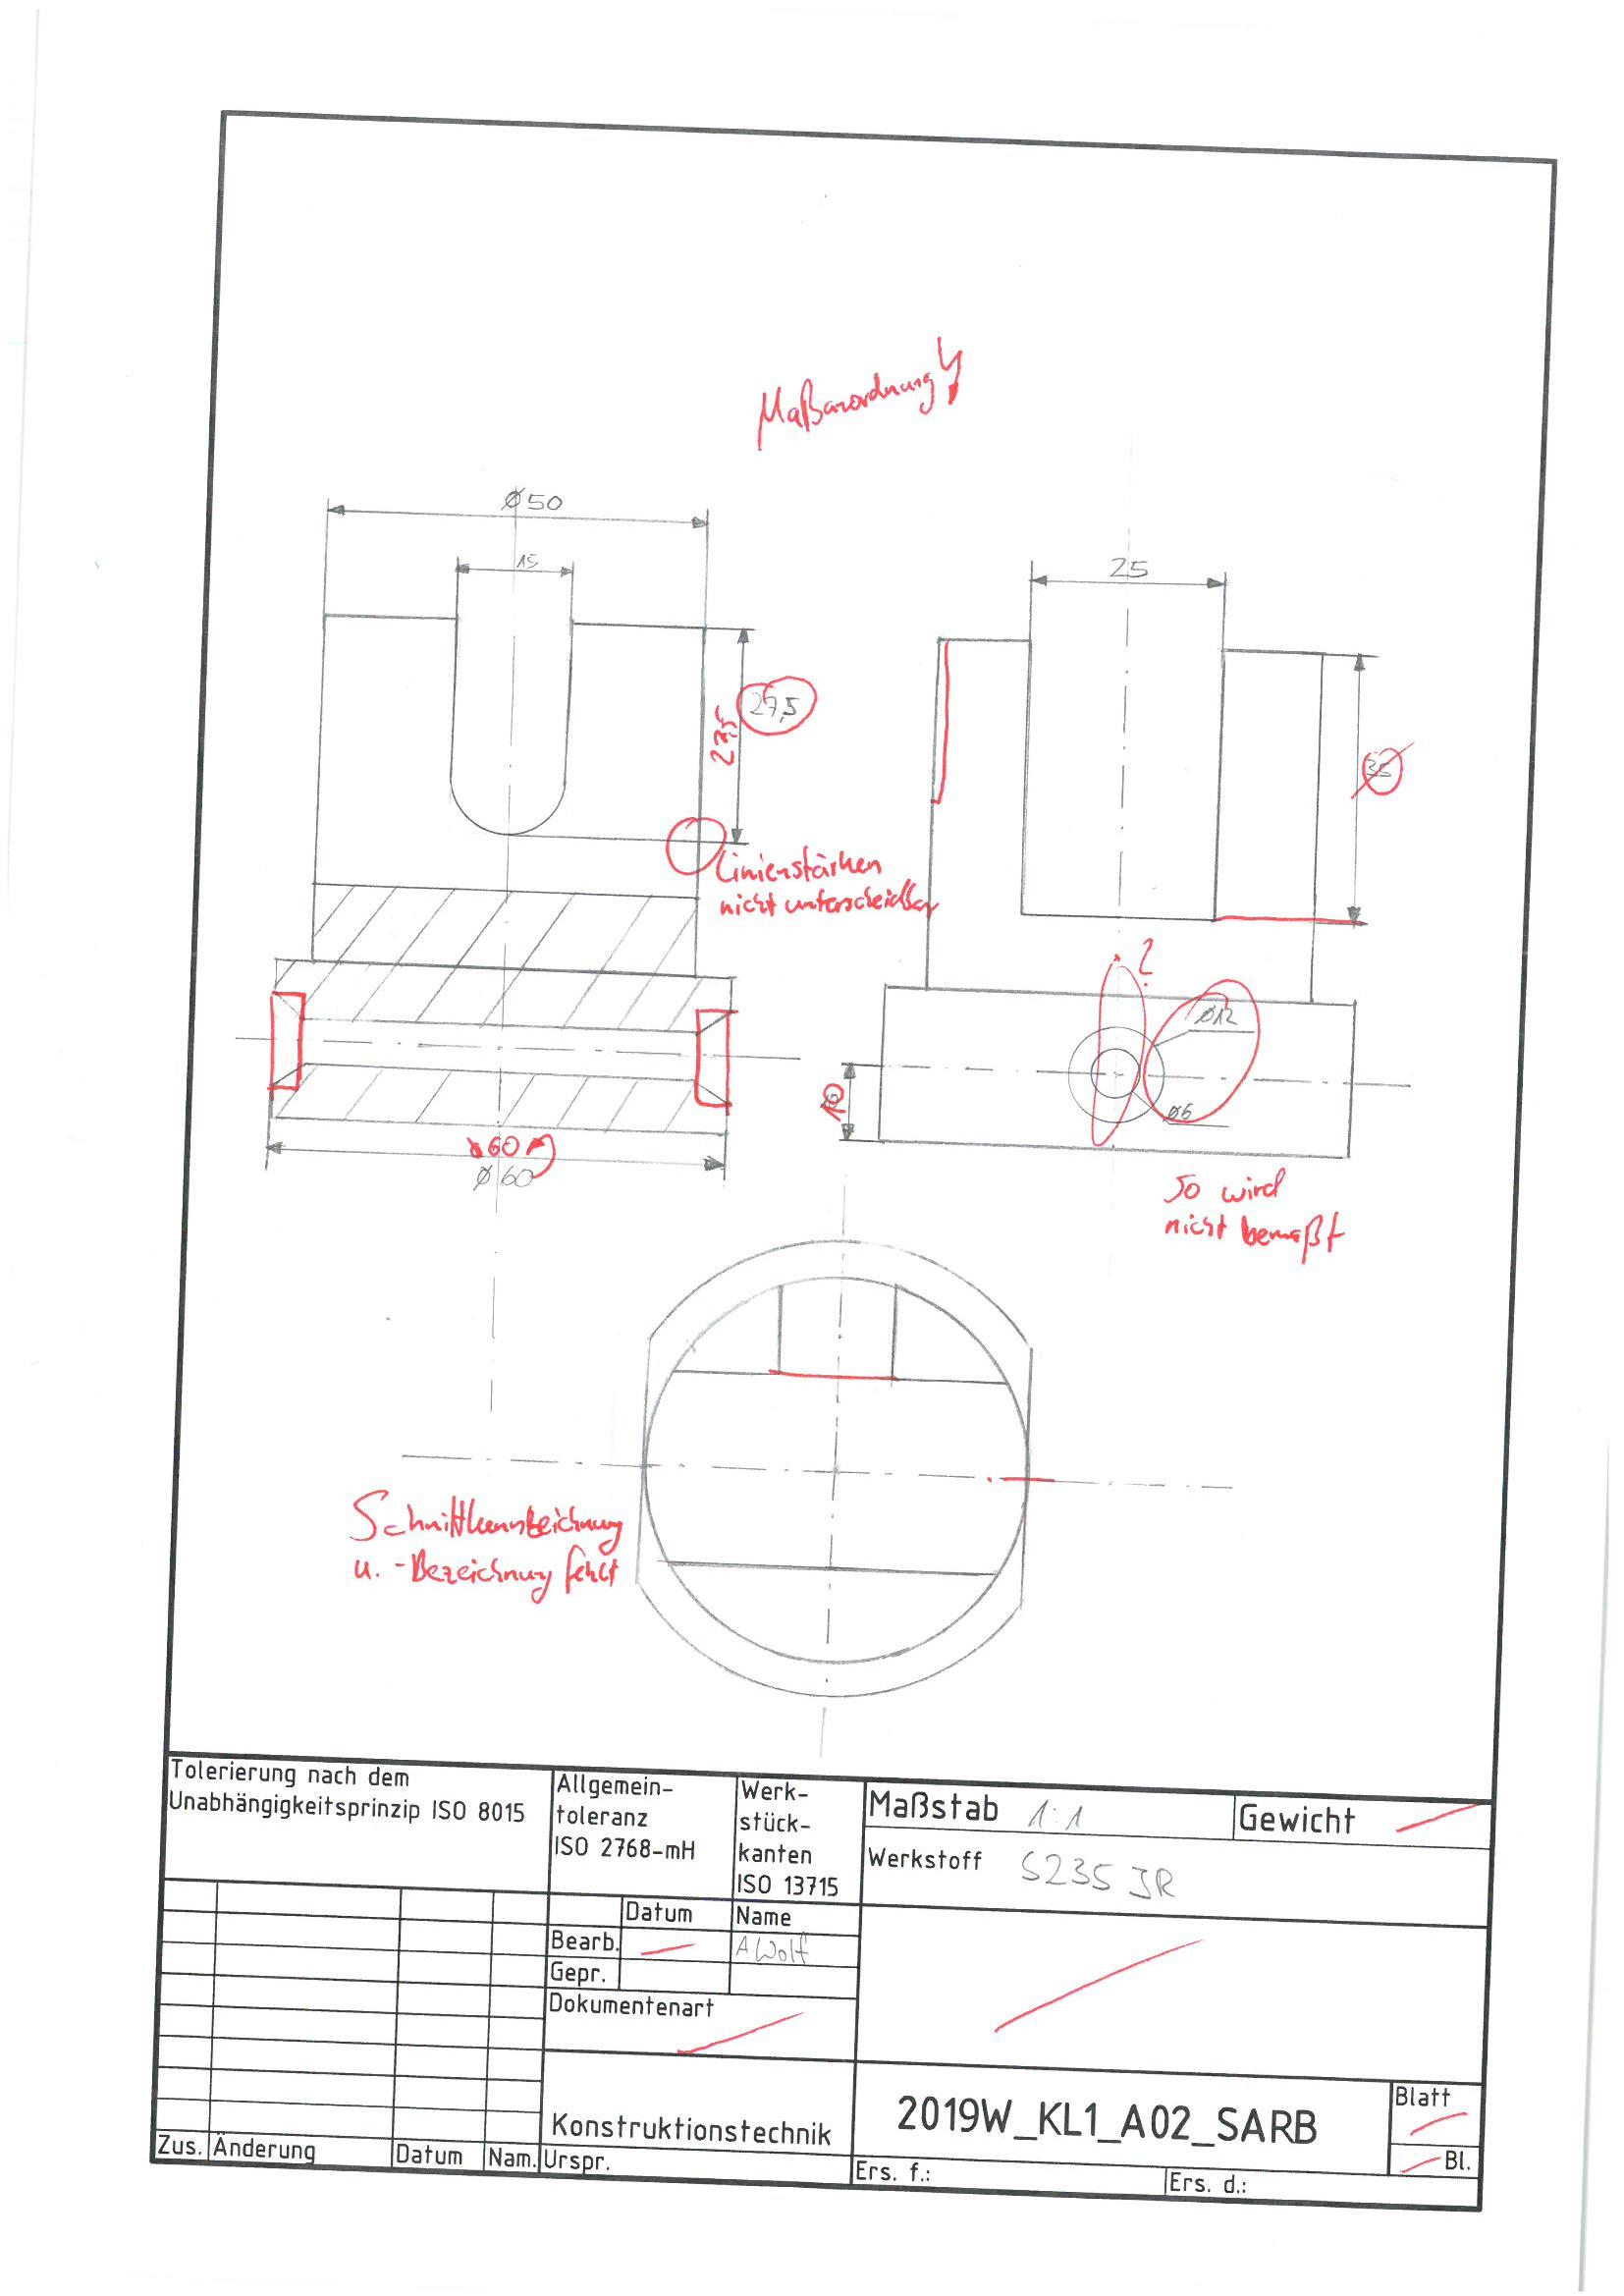 Maßanordnung
Ø50
15
25
27,5
27,5
35
Linienstärken
nicht unterscheidbar
?
Ø12
10
Ø6
60
Ø60
So wird
nicht bemaßt
Schnittkennzeichnung
u. -Bezeichnung fehlt
Tolerierung nach dem
Unabhängigkeitsprinzip ISO 8015
Allgemein-
toleranz
ISO 2768-mH
Werk-
stück-
kanten
ISO 13715
Maßstab 1:1
Gewicht
Werkstoff S235 JR
Datum
Name
Bearb.
A Wolf
Gepr.
Dokumentenart
Konstruktionstechnik
2019W_KL1_A02_SARB
Blatt
Bl.
Zus.
Änderung
Datum
Nam.
Urspr.
Ers. f.:
Ers. d.: